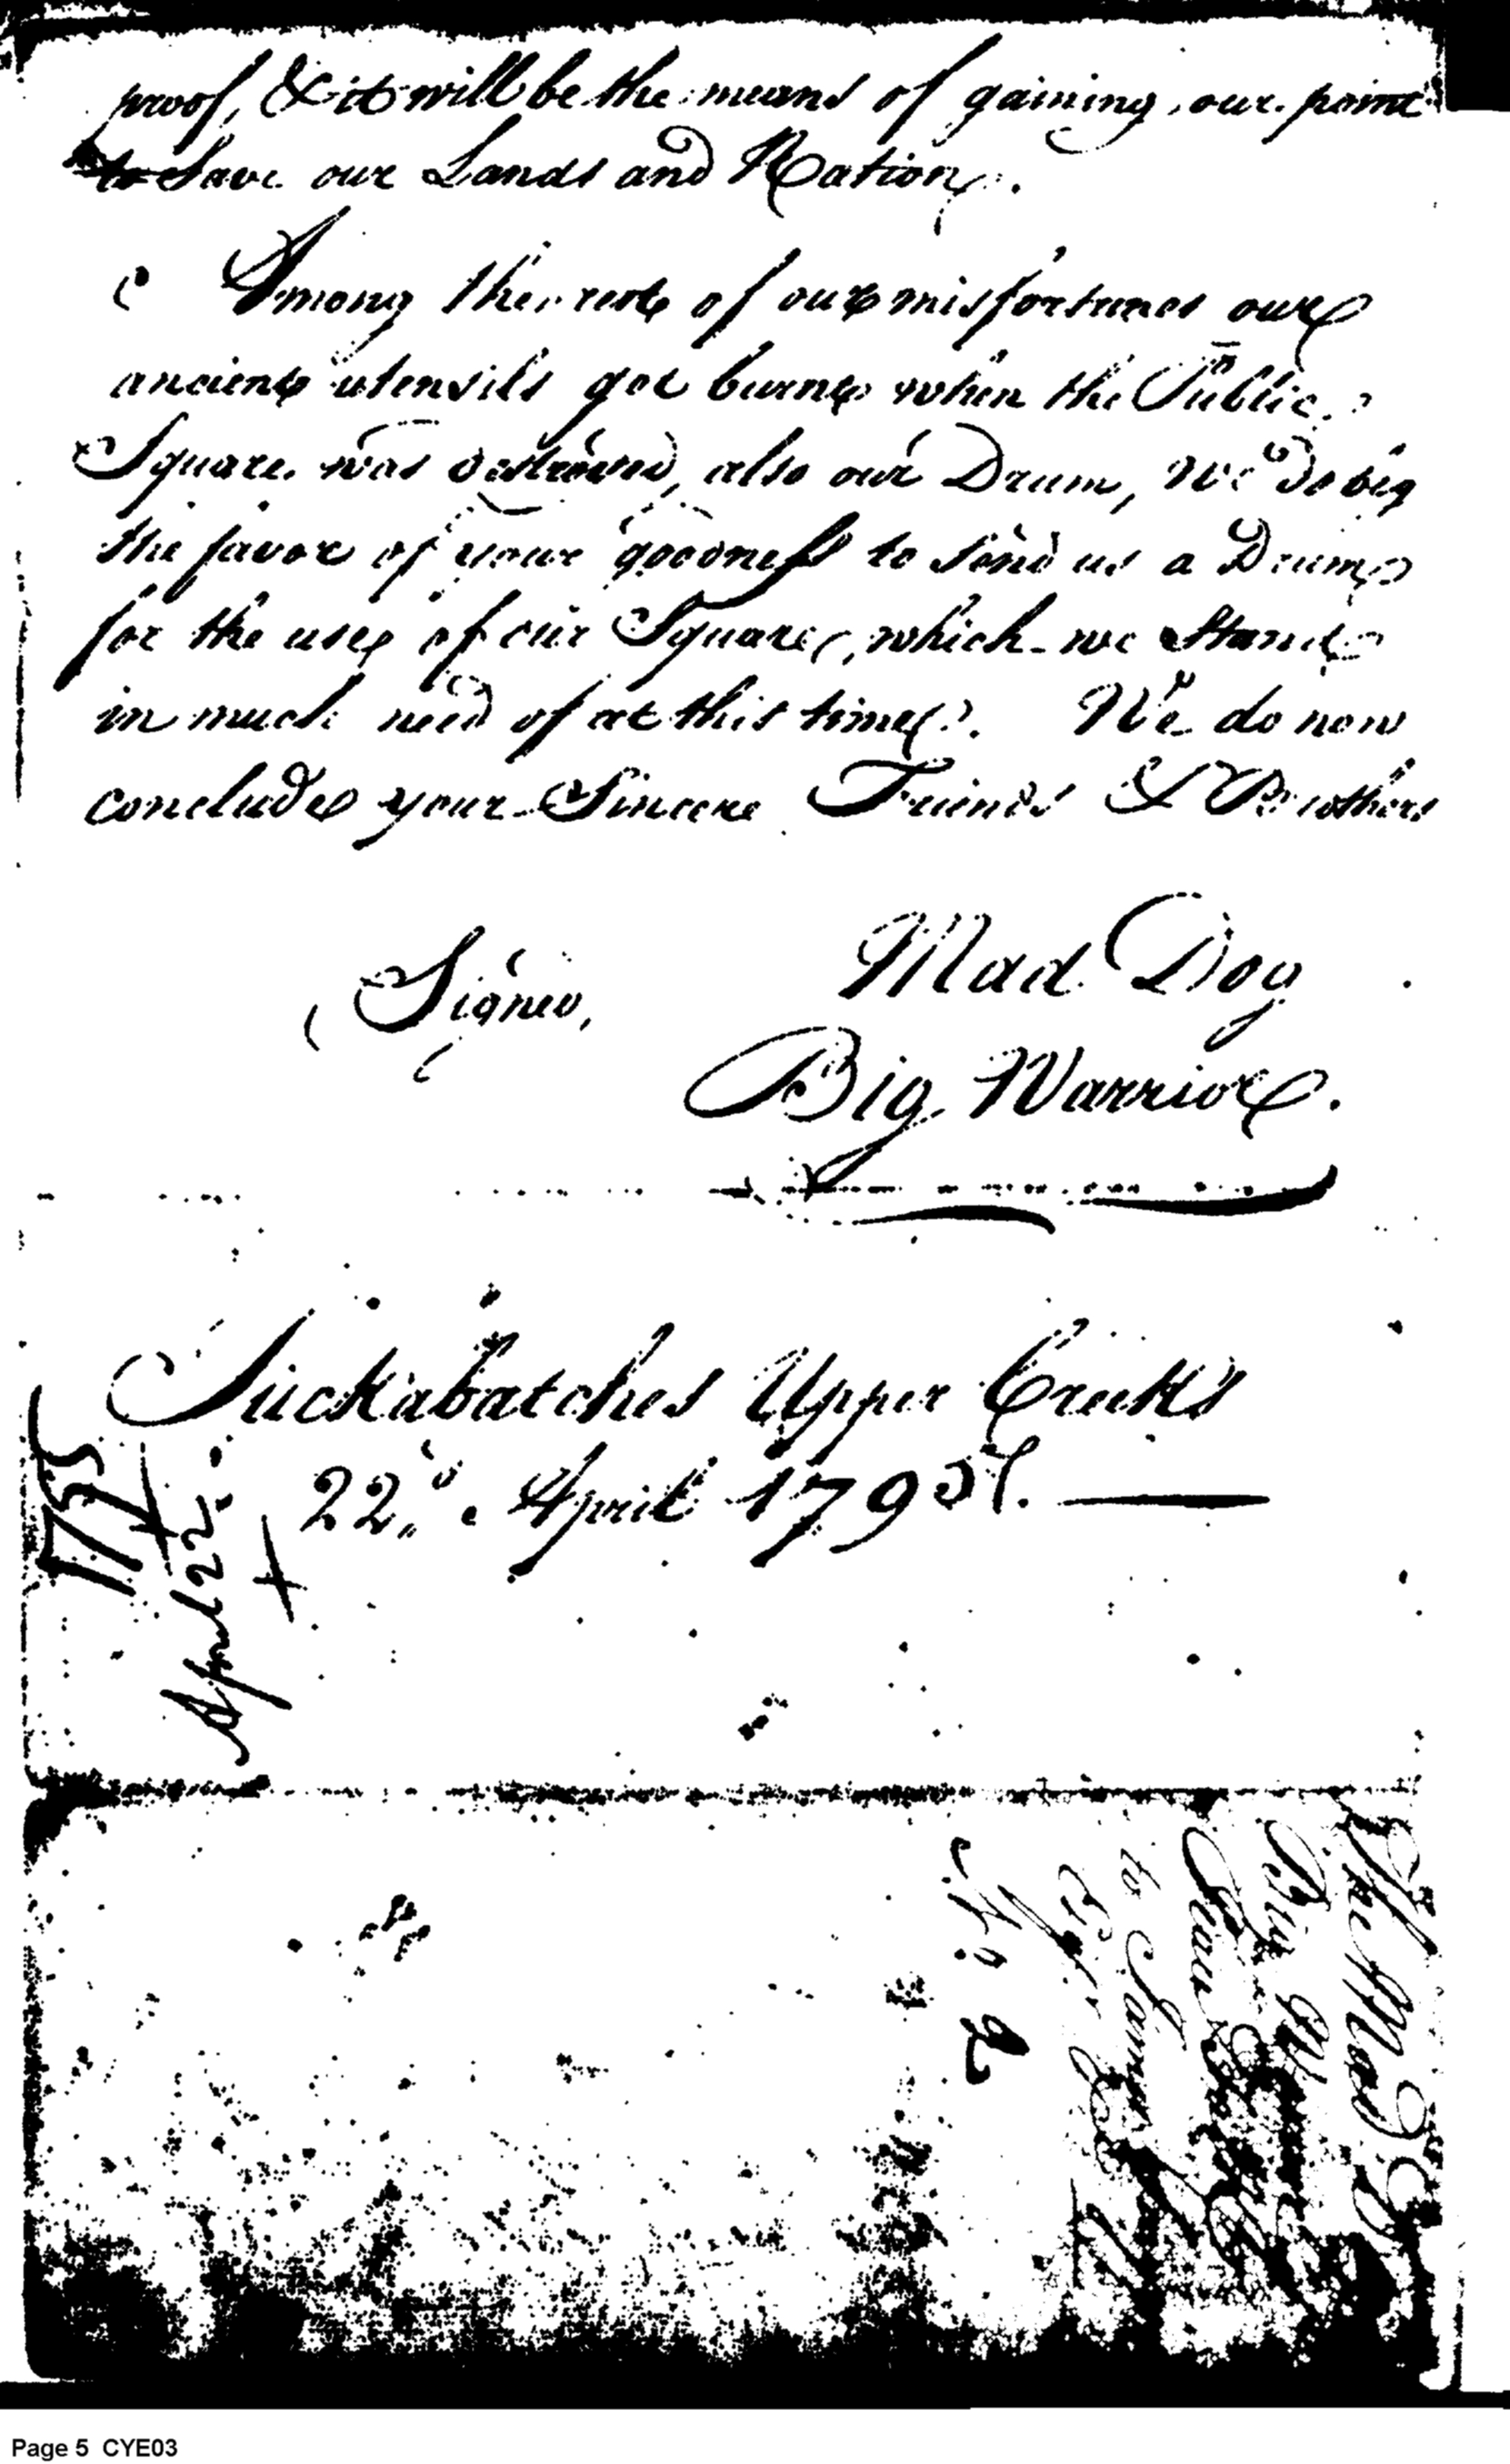 proof, & it will be the means of gaining our point
to Save our Lands and Nation.
Among the rest of our misfortunes our
ancient utensils got burnt when the Public
Square was destroied, also our Drum, We do beg
the favor of your goodness to send us a Drum
for the use of our Square, which we Stand
in much need of at this time. We do now
conclude your Sincere Friends & Brothers
Signed,
Mad Dog
Big Warrior.
Tuckabatches Upper Creek's
22d. April 1795.
1795
April 22
The Mad
Big
to James
No 2
Page 5 CYE03